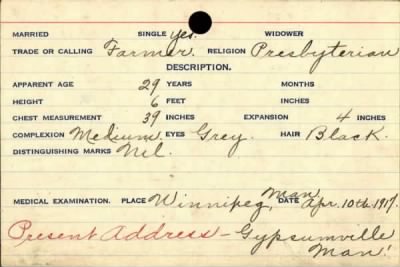 MARRIED SINGLE yes. WIDOWER
TRADE OR CALLING Farmer. RELIGION Presbyterian
DESCRIPTION.
APPARENT AGE 29 YEARS MONTHS
HEIGHT 6 FEET INCHES
CHEST MEASUREMENT 39 INCHES EXPANSION 4 INCHES
COMPLEXION Medium EYES Grey. HAIR Black.
DISTINGUISHING MARKS Nil.
MEDICAL EXAMINATION. PLACE Winnipeg, Man. DATE Apr. 10th. 1917.
Present Address - Gypsumville
Man!